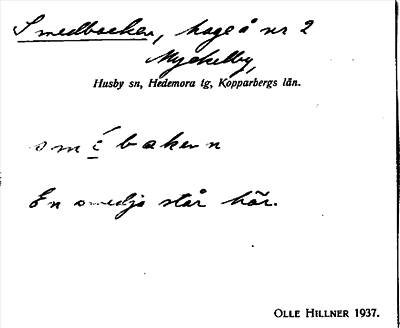 Smedbacken, hage å nr 2
Myckelby,
Husby sn, Hedemora tg, Kopparbergs län.
smèbakẹn
En smedja står här.
OLLE HILLNER 1937.